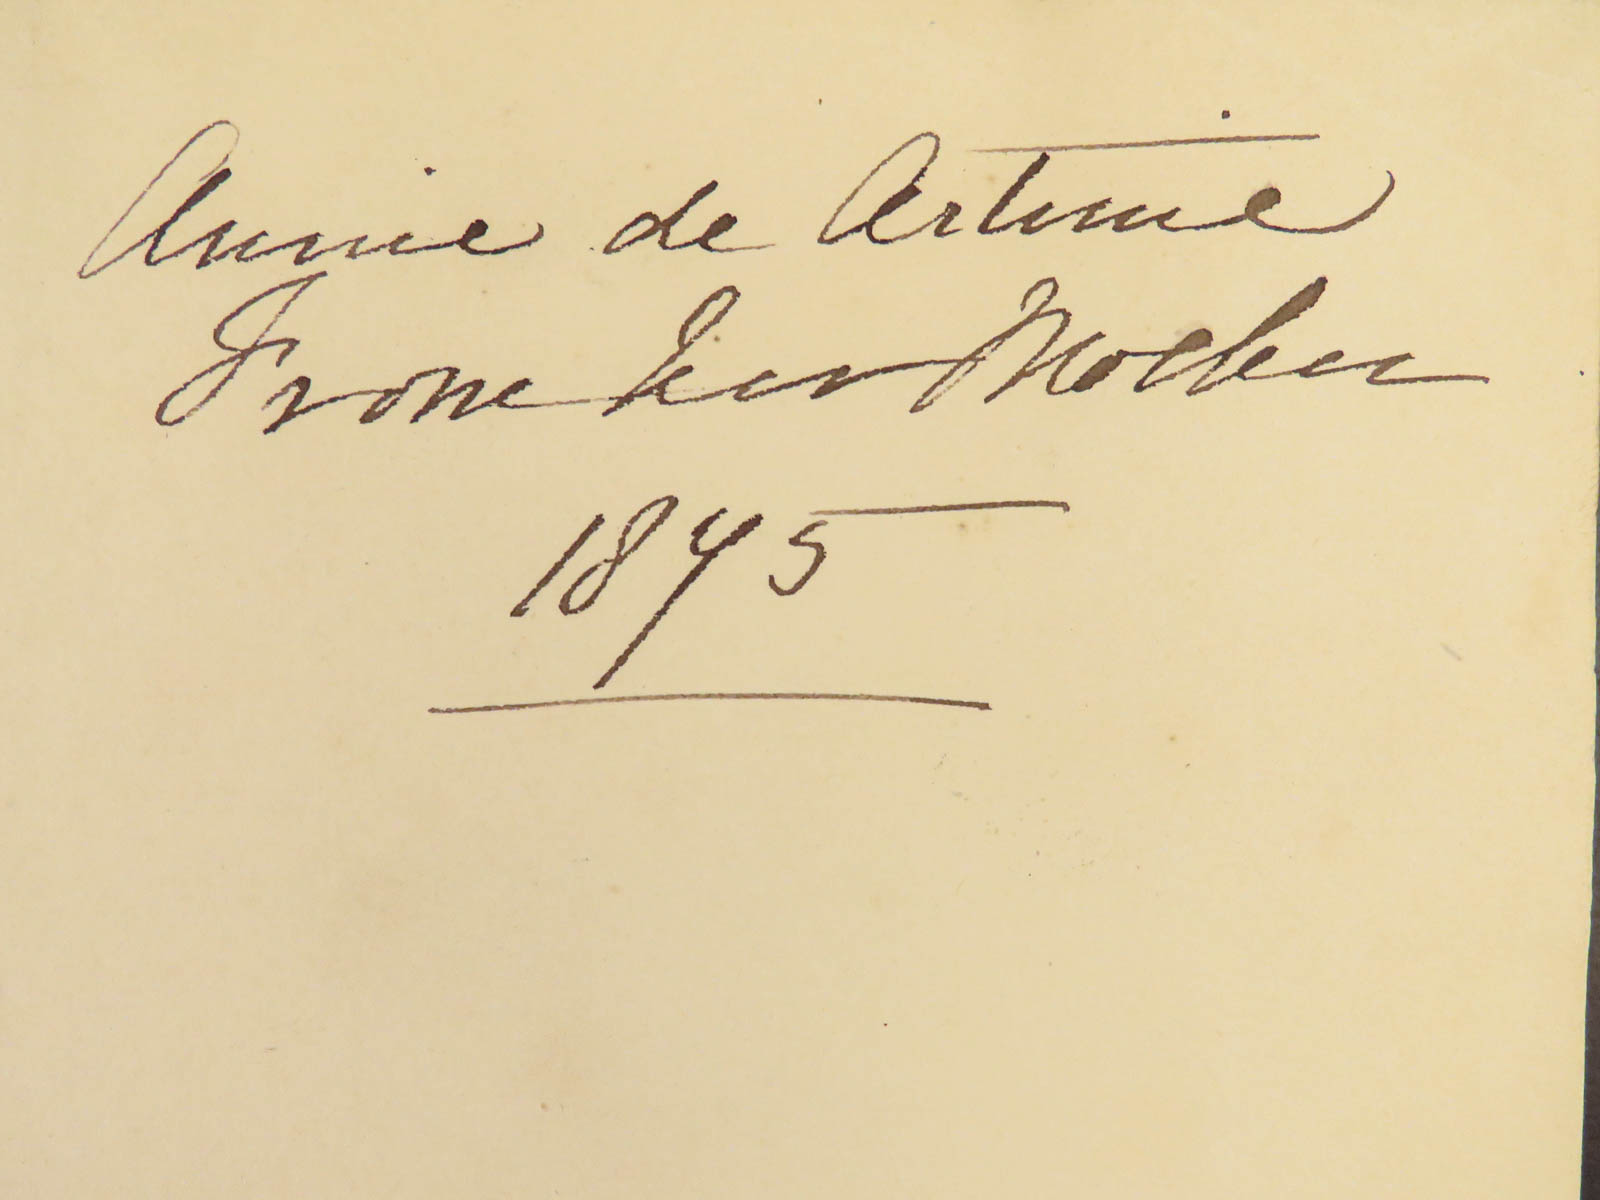 Annie de Artinie
From her Mother
1875